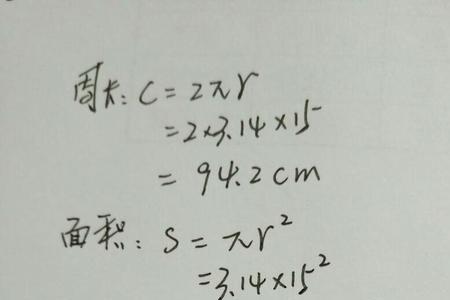 周长: C = 2πr
= 2×3.14×15
= 94.2cm
面积: S = πr²
= 3.14×15²